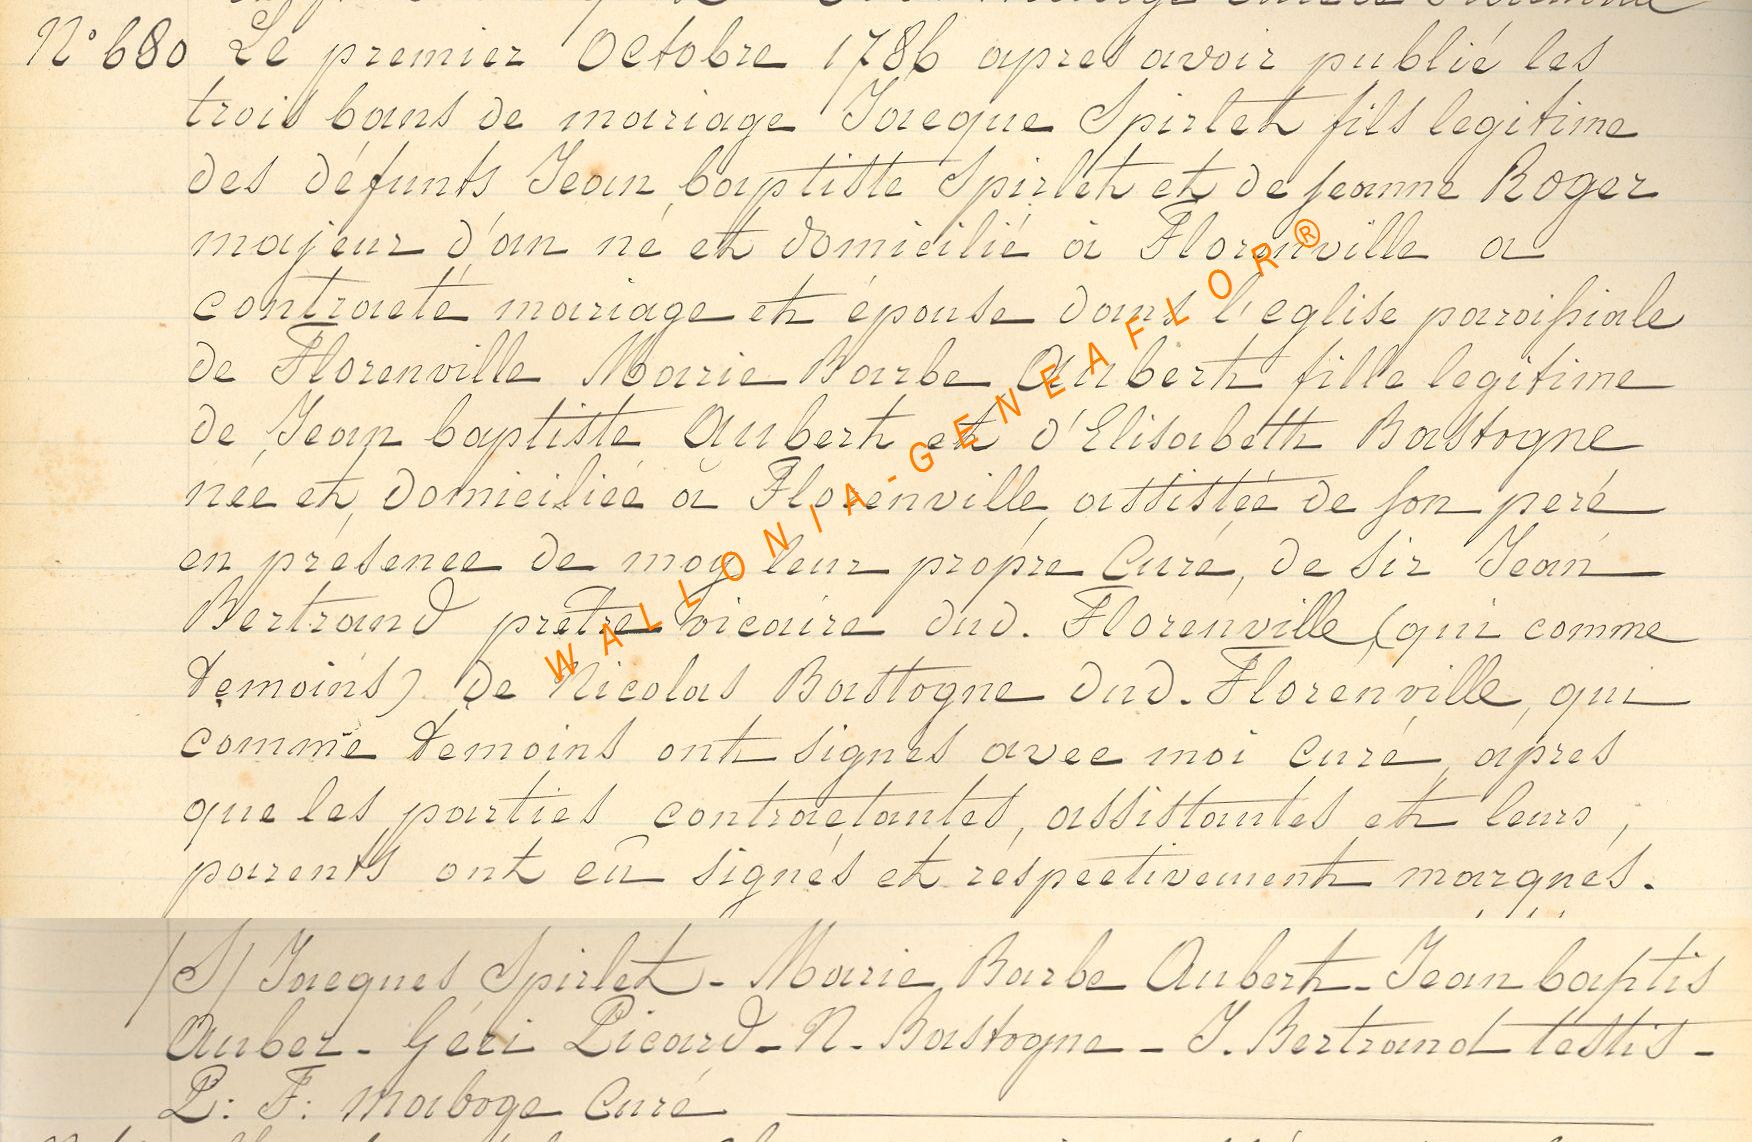 N° 680 Le premier Octobre 1786 apres avoir publié les
trois bans de mariage Jacque Spirlet fils legitime
des défunts Jean baptiste Spirlet et de Jeanne Roger
majeur d'an né et domicilié à Florenville a
contracté mariage et épouse dans l'eglise paroissiale
de Florenville Marie Barbe Aubert fille legitime
de Jean baptiste Aubert et d'Elisabeth Bastogne
née et domiciliée à Florenville assistée de son peré
en présence de moy leur propre Curé, de sir Jean
Bertrand prêtre vicaire dud. Florenville (qui comme
temoins) de Nicolas Bastogne dud. Florenville, qui
comme temoins ont signés avec moi curé, apres
que les parties contractantes, assistantes et leurs,
parents ont eû signés et réspectivement marqués.
/S/ Jacques Spirlet - Marie Barbe Aubert - Jean baptis
Auber - Géri Picard - N. Bastogne - J. Bertrand testis -
P: F: Maboge Curé
WALLONIA-GENEAFLOR®